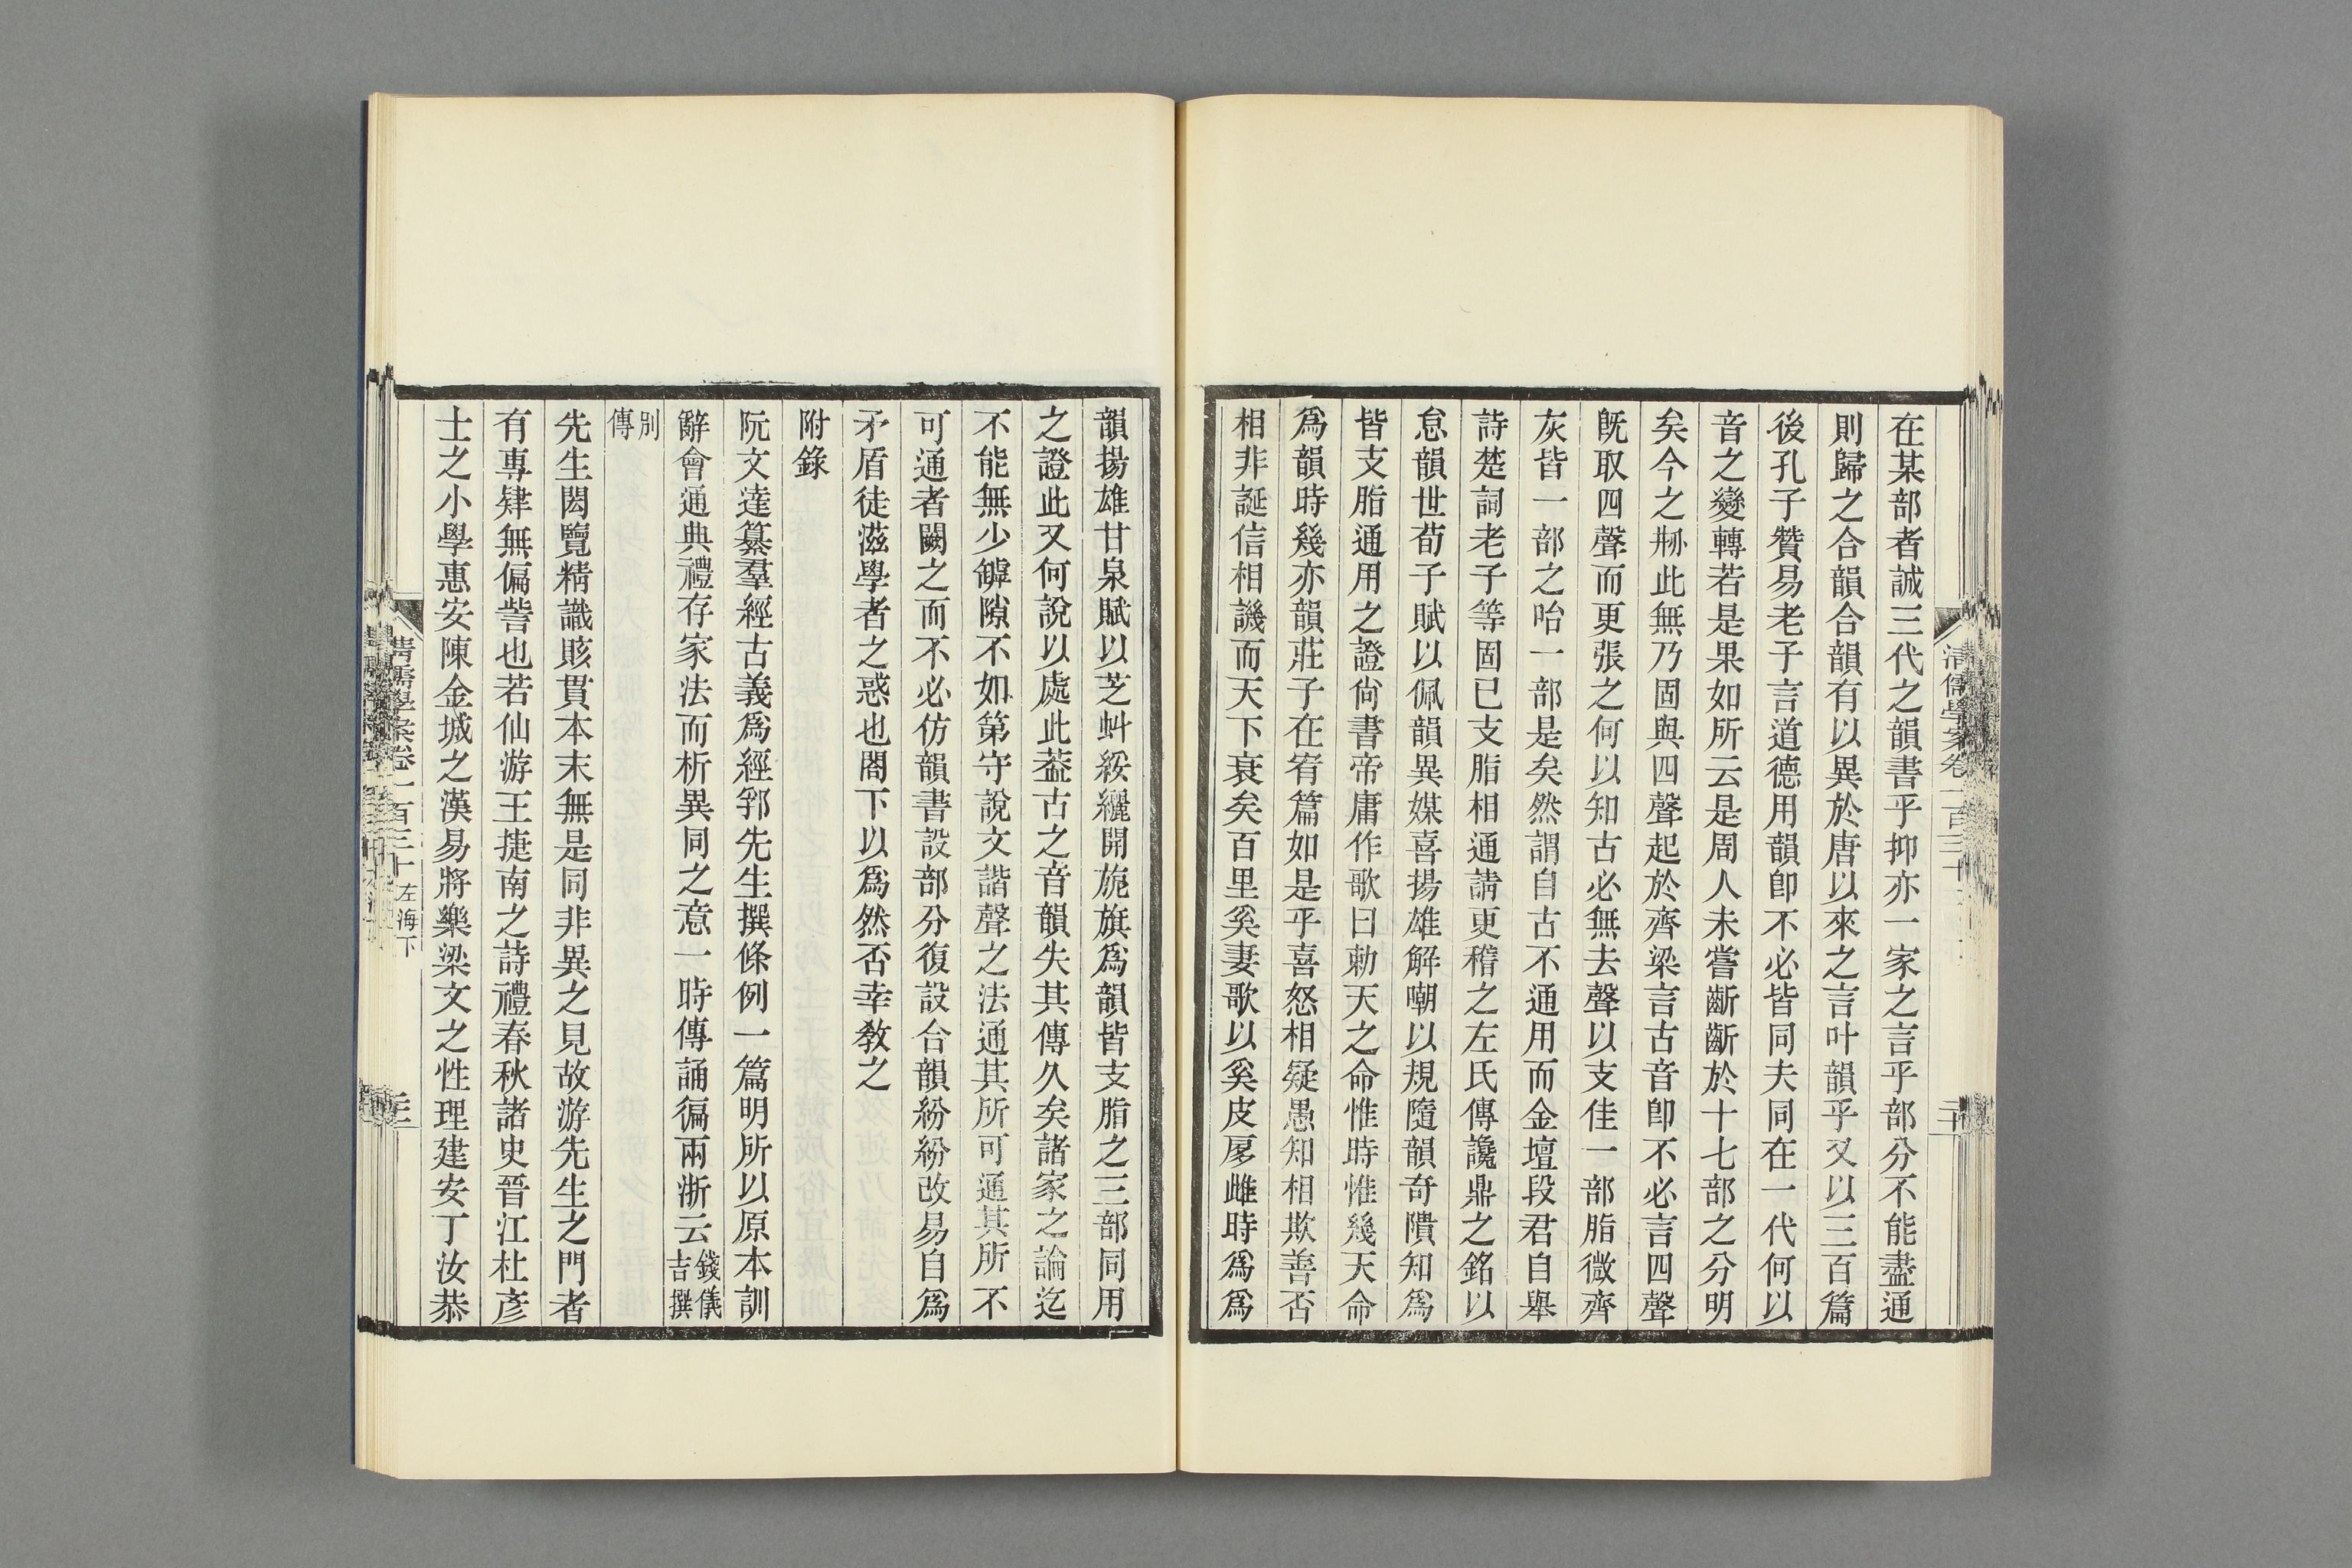 在某部者誠三代之韻書乎抑亦一家之言乎部分不能盡通
則歸之合韻合韻有以異於唐以來之言叶韻乎又以三百篇
後孔子贊易老子言道德用韻卽不必皆同夫同在一代何以
音之變轉若是果如所云是周人未嘗齗齗於十七部之分明
矣今之剙此無乃固與四聲起於齊梁言古音卽不必言四聲
旣取四聲而更張之何以知古必無去聲以支佳一部脂微齊
灰皆一部之咍一部是矣然謂自古不通用而金壇段君自舉
詩楚詞老子等固已支脂相通請更稽之左氏傳讒鼎之銘以
怠韻世荀子賦以佩韻異媒喜揚雄解嘲以規隨韻奇隤知爲
皆支脂通用之證尙書帝庸作歌曰勅天之命惟時惟幾天命
爲韻時幾亦韻莊子在宥篇如是乎喜怒相疑愚知相欺善否
相非誕信相譏而天下衰矣百里奚妻歌以奚皮扅雌時爲爲
清儒學案卷一百三十
韻揚雄甘泉賦以芝蚪綏纚開旎旗爲韻皆支脂之三部同用
之證此又何說以處此葢古之音韻失其傳久矣諸家之論迄
不能無少罅隙不如第守說文諧聲之法通其所可通其所不
可通者闕之而不必仿韻書設部分復設合韻紛紛改易自爲
矛盾徒滋學者之惑也閣下以爲然否幸教之
附錄
阮文達纂羣經古義爲經郛先生撰條例一篇明所以原本訓
辭會通典禮存家法而析異同之意一時傳誦徧兩浙云錢儀吉撰
別傳
先生閎覽精識賅貫本末無是同非異之見故游先生之門者
有專肄無偏訾也若仙游王捷南之詩禮春秋諸史晉江杜彥
士之小學惠安陳金城之漢易將樂梁文之性理建安丁汝恭
清儒學案卷一百三十 左海下